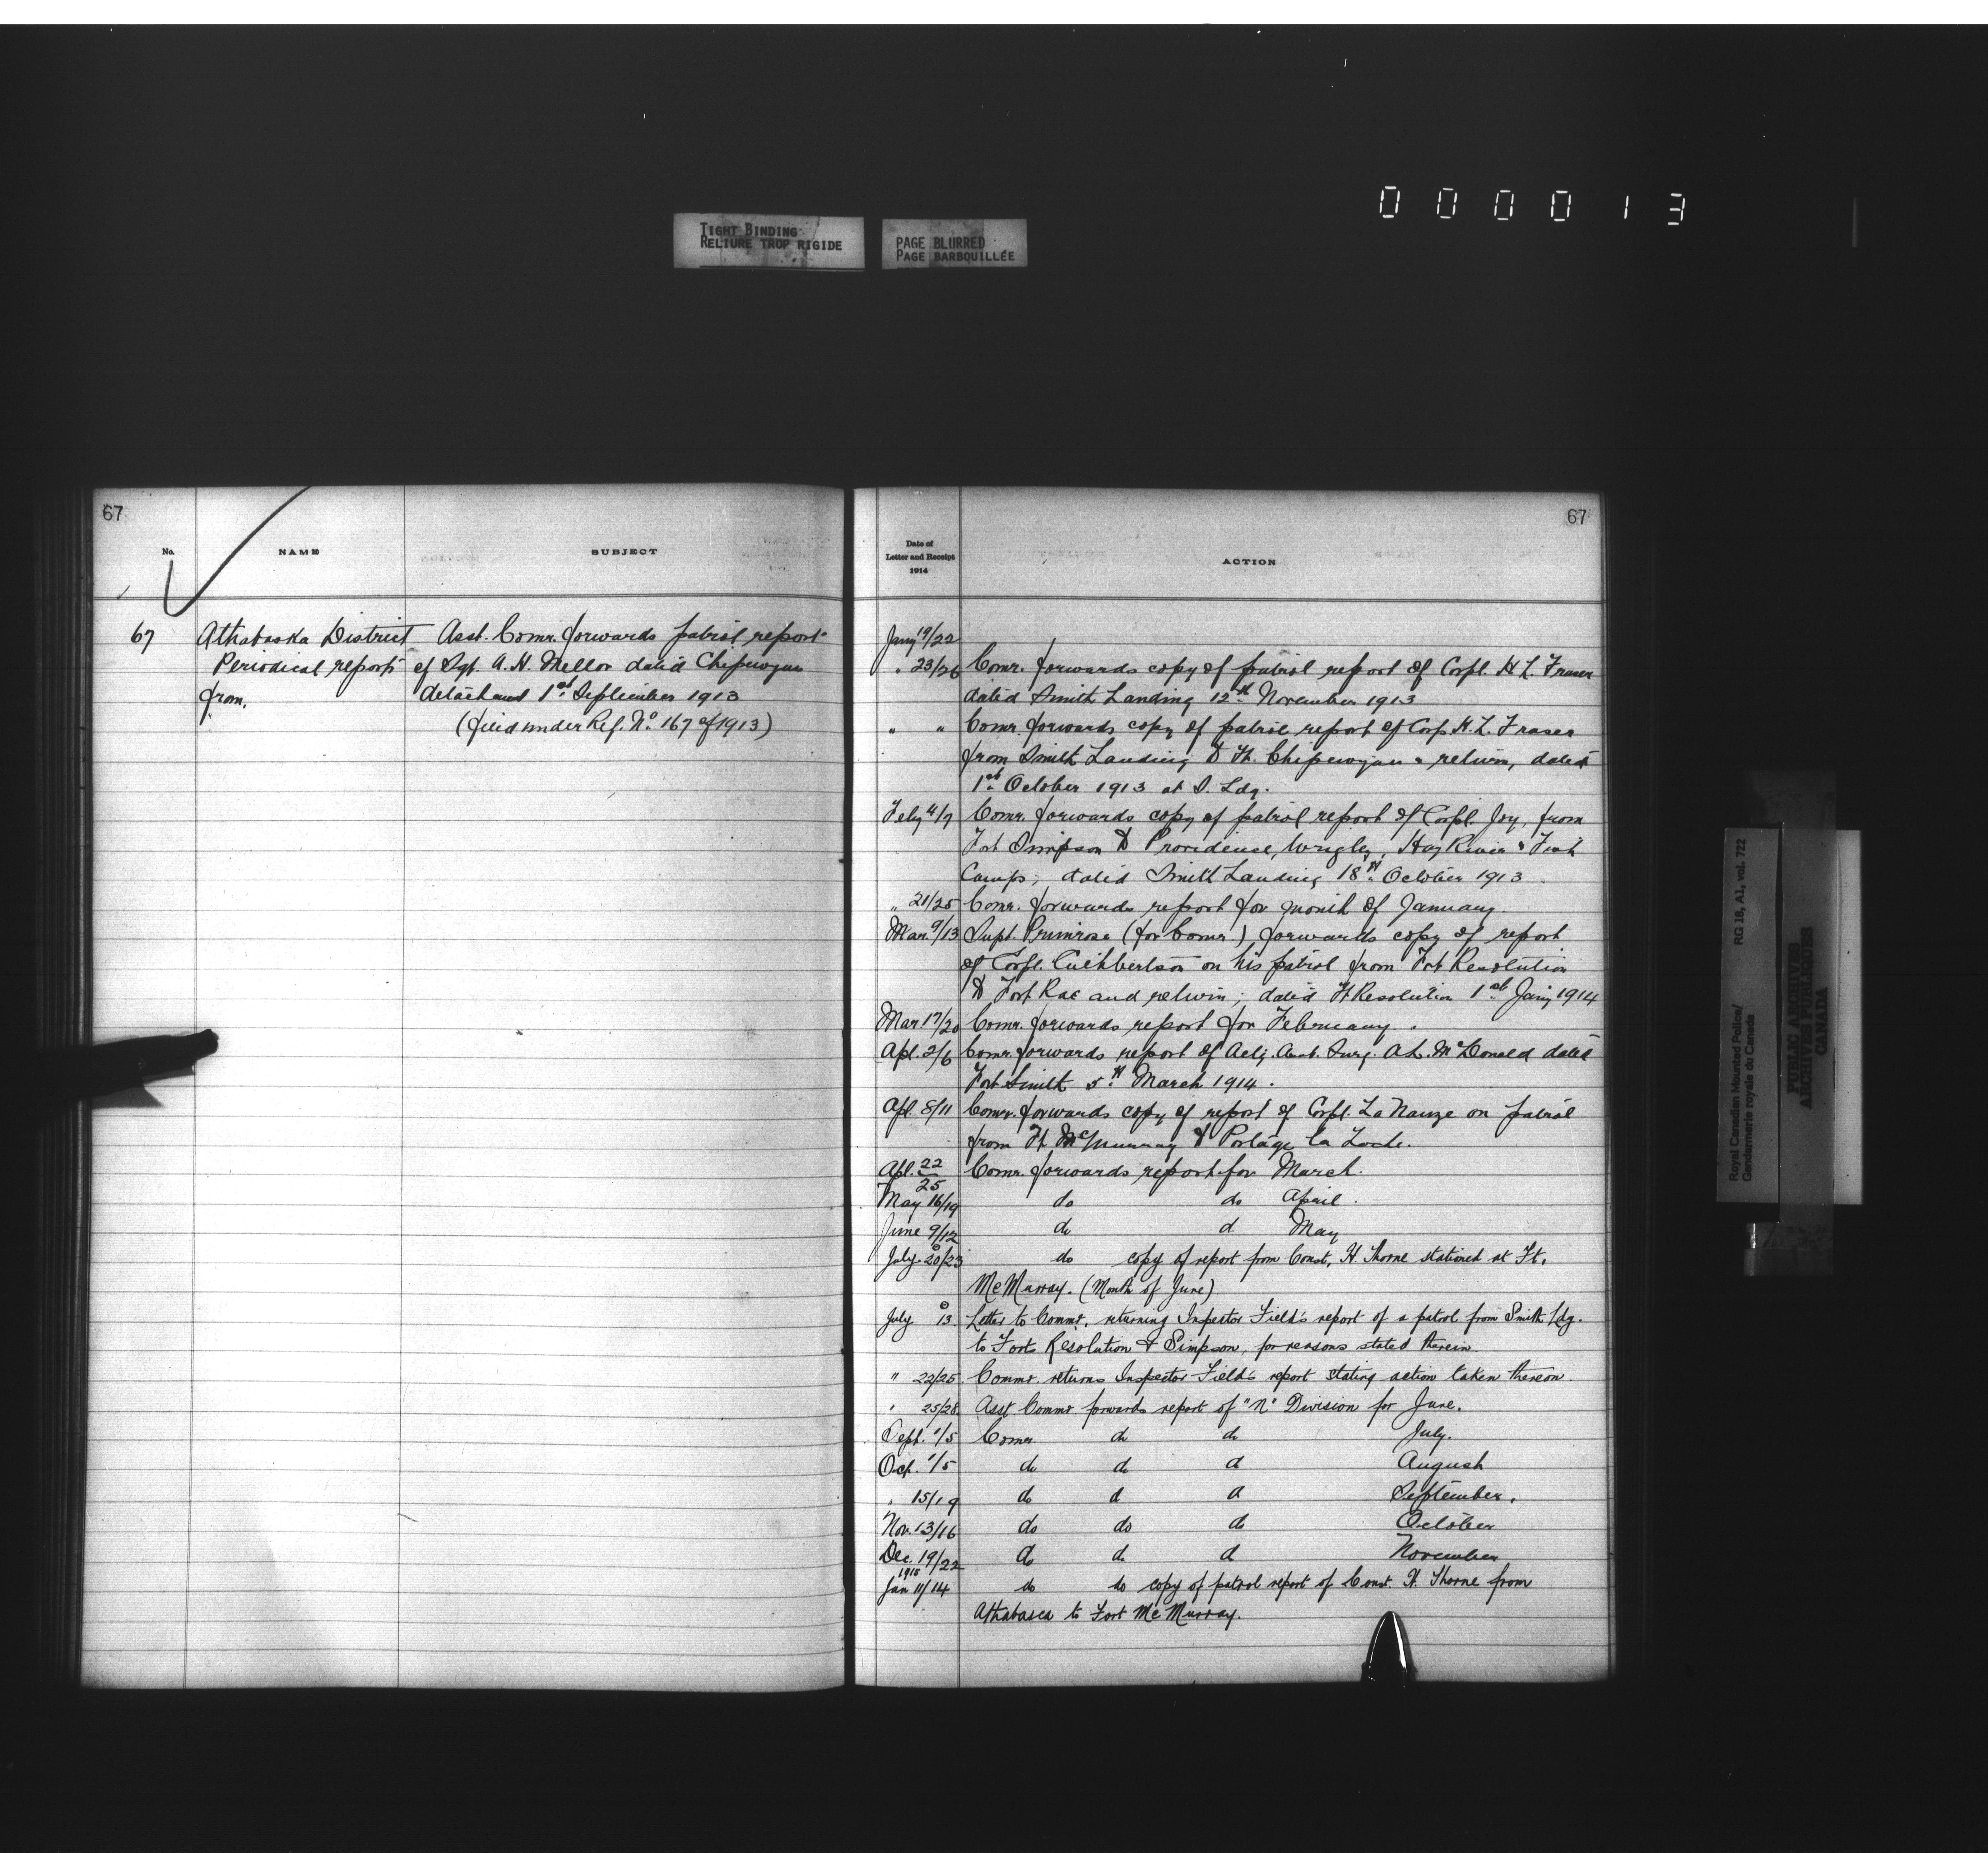 000013
TIGHT BINDING
RELIURE TROP RIGIDE
PAGE BLURRED
PAGE BARBOUILLÉE
67
No.
NAME
SUBJECT
67 Athabaska District Asst. Comr. forwards patrol report
Periodical reports of Sgt. A. H. Mellor dated Chipewyan
from. detachment 1st September 1913
(filed under Ref. No. 167 of 1913)
67
Date of
Letter and Receipt
1914
ACTION
Jany 19/22
" 23/26 Comr. forwards copy of patrol report of Corpl. H L. Fraser
dated Smith Landing 12th November 1913
" " Comr. forwards copy of patrol report of Corp. H. L. Fraser
from Smith Landing to Ft. Chipewyan & return, dated
1st October 1913 at S. Ldg.
Feby 4/7 Comr. forwards copy of patrol report of Corpl. Joy, from
Fort Simpson to Providence, Wrigley, Hay River & Fish
Camps; dated Smith Landing 18th October 1913
" 21/25 Comr. forwards report for month of January.
Mar. 9/13 Supt. Primrose (for Comr) forwards copy of report
of Corpl. Cuthbertson on his patrol from Fort Resolution
to Fort Rae and return; dated Ft Resolution 1st Jany 1914
Mar 17/20 Comr. forwards report for February.
Apl. 2/6 Comr. forwards report of Actg. Asst. Surg. A L. McDonald dated
Fort Smith 5th March 1914.
Apl. 8/11 Comr. forwards copy of report of Corpl. LaNauze on patrol
from Ft. McMurray to Portage la Loche.
Apl. 22/25 Comr. forwards report for March.
May 16/19 do do April.
June 9/12 do do May
July 20/23 do copy of report from Const. H. Thorne stationed at Ft.
McMurray. (Month of June)
July 13. Letter to Commr. returning Inspector Field's report of a patrol from Smith Ldg.
to Forts Resolution & Simpson, for reasons stated therein.
" 22/25 Commr. returns Inspector Field's report stating action taken thereon.
" 25/28 Asst Commr forwards report of "N" Division for June.
Sept. 1/5 Comr. do do July.
Oct. 1/5 do do do August
" 15/19 do do do September.
Nov. 13/16 do do do October
Dec. 19/22 do do do November
1915
Jan 11/14 do do copy of patrol report of Const. H. Thorne from
Athabasca to Fort McMurray.
Royal Canadian Mounted Police/
Gendarmerie royale du Canada
RG 18, A1, vol. 722
PUBLIC ARCHIVES
ARCHIVES PUBLIQUES
CANADA